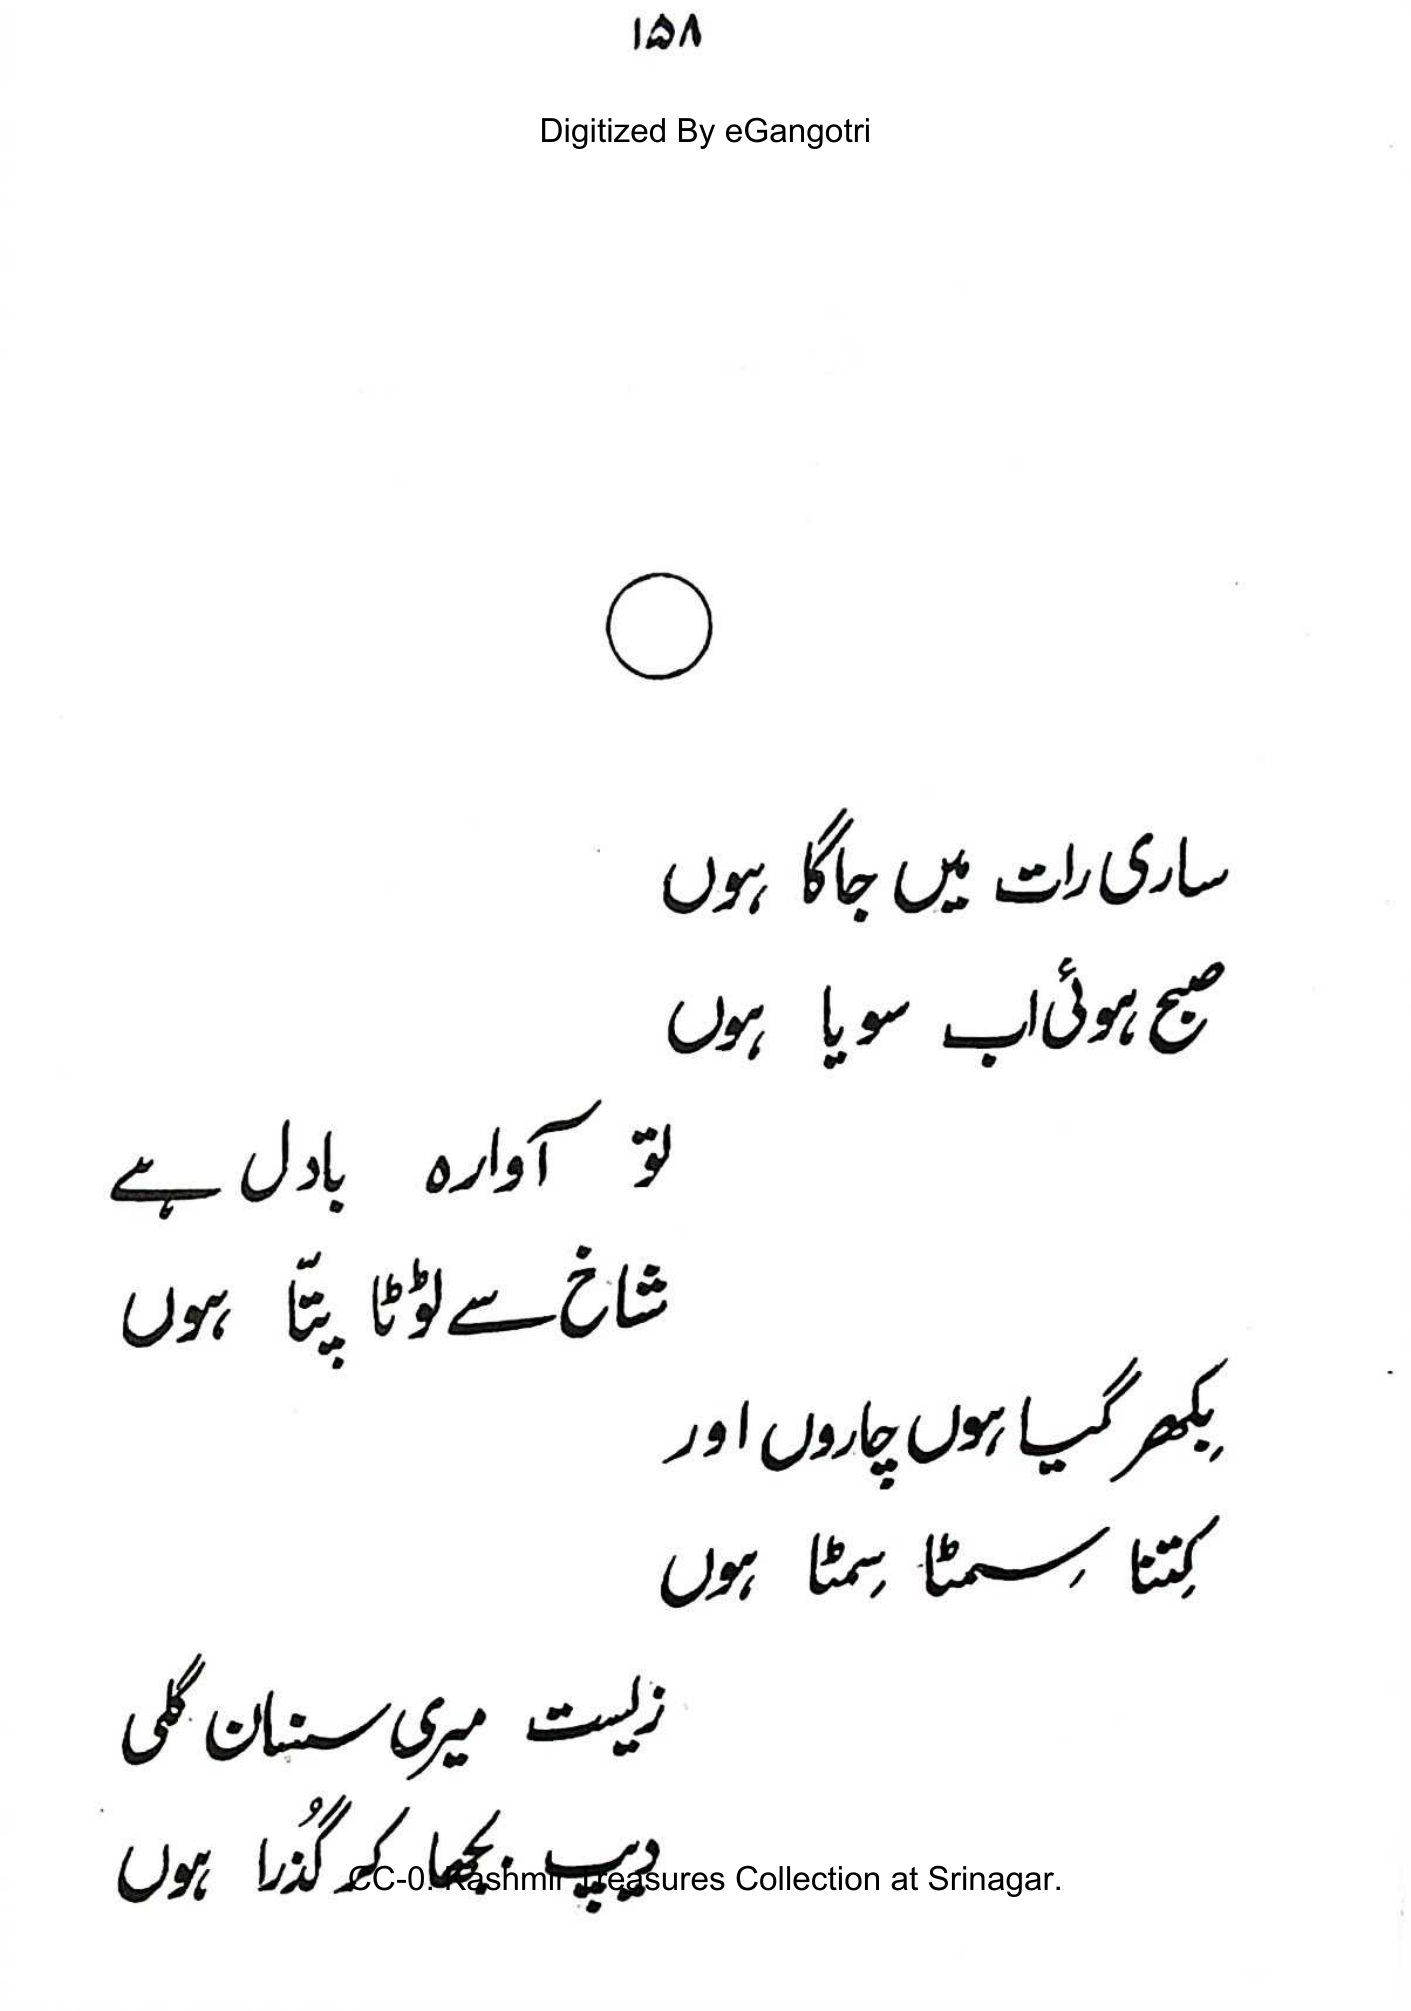 ۱۵۸
Digitized By eGangotri
ساری رات میں جاگا ہوں
صبح ہوئی اب سویا ہوں
تو آوارہ بادل ہے
شاخ سے ٹوٹا پتّا ہوں
بِکھر گیا ہوں چاروں اور
کِتنا سِمٹا سِمٹا ہوں
زیست میری سنسان گلی
دیپ بجھا کر گُذرا ہوں
CC-0. Kashmir Treasures Collection at Srinagar.